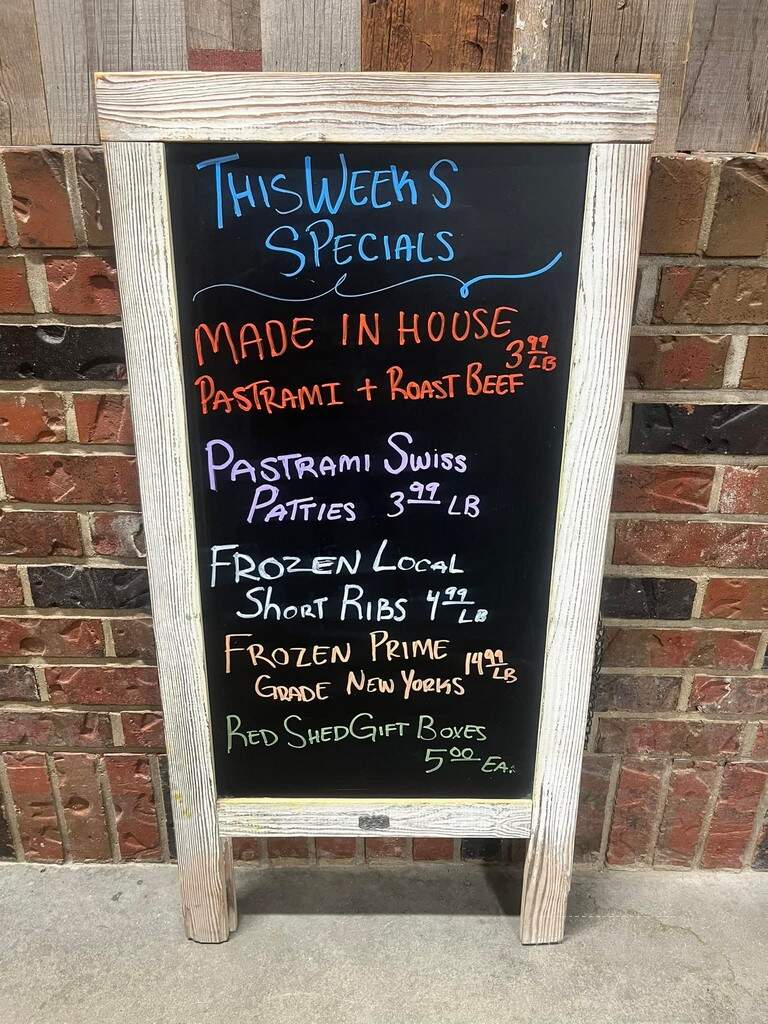 THIS WEEKS
SPECIALS
MADE IN HOUSE
3 99/LB
PASTRAMI + ROAST BEEF
PASTRAMI SWISS
PATTIES 3 99 LB
FROZEN LOCAL
SHORT RIBS 4 99/LB
FROZEN PRIME
GRADE NEW YORKS 14 99/LB
RED SHED GIFT BOXES
5 00 EA.